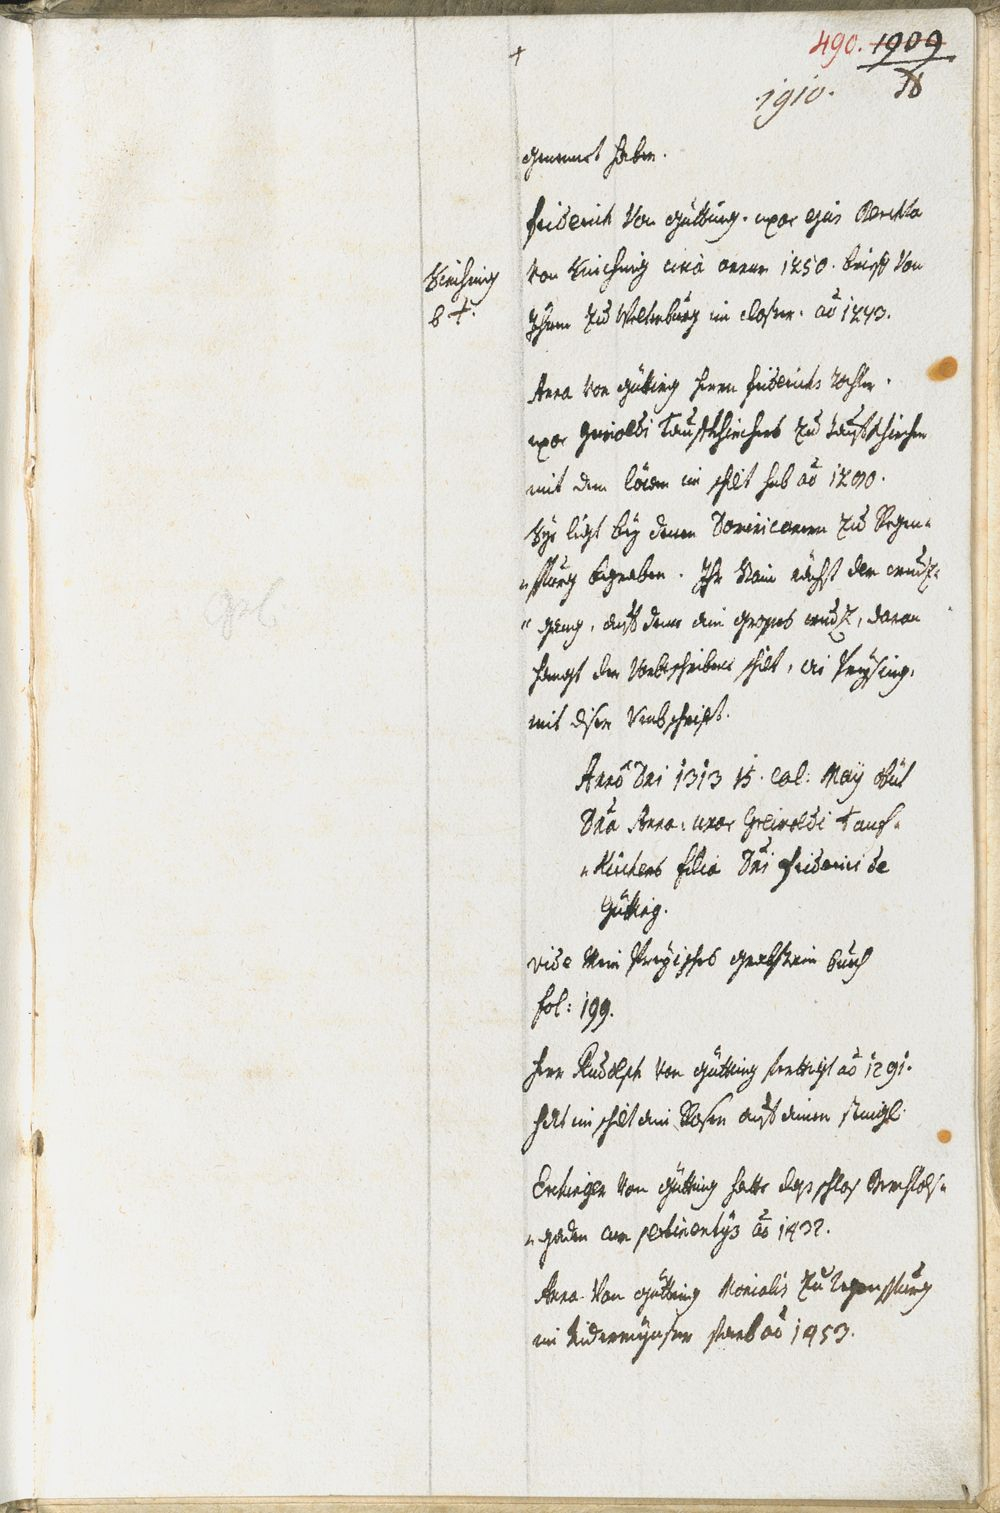 490. 1909
78
1910.
genennt haben.
Friderich Von Gütting. uxor ejus Berchta
Von Kirchperg circa annum 1250. brieff Von
Ihme zu Weltenburg im closter. aõ 1243.
Kirchperg
b +.
Anna Von Gütting Herrn Friderichs tochter.
uxor Grimoldi Tauffkhirchers zu Tauffkhirchen
mit dem löwen im schilt hab aõ 1290.
Sye ligt bey denen Dominicanern zu Regen-
-spurg begraben. Ihr stain nächst dem creutz-
-gang, auf deme ein grosses creutz, daran
hangt der Vorbeschribene schilt, wie Preysing,
mit diser Umbschrifft.
Anno Dni 1313 15. cal: May obiit
Dna Anna: uxor Greimoldi Tauf-
-kirchers filia Dni Friderici de
Gütting.
vide Mein Preysisches grabstein buech
fol: 199.
Herr Rudolph Von Gütting aõ 1291.
hat im schilt ein Rosen auf einem stengl
Von Gütting hatte dass schlos
-gaden cum pertinentijs aõ 1432.
Anna Von Gütting Monialis zu Regenspurg
im Nidermünster starb aõ 1453.